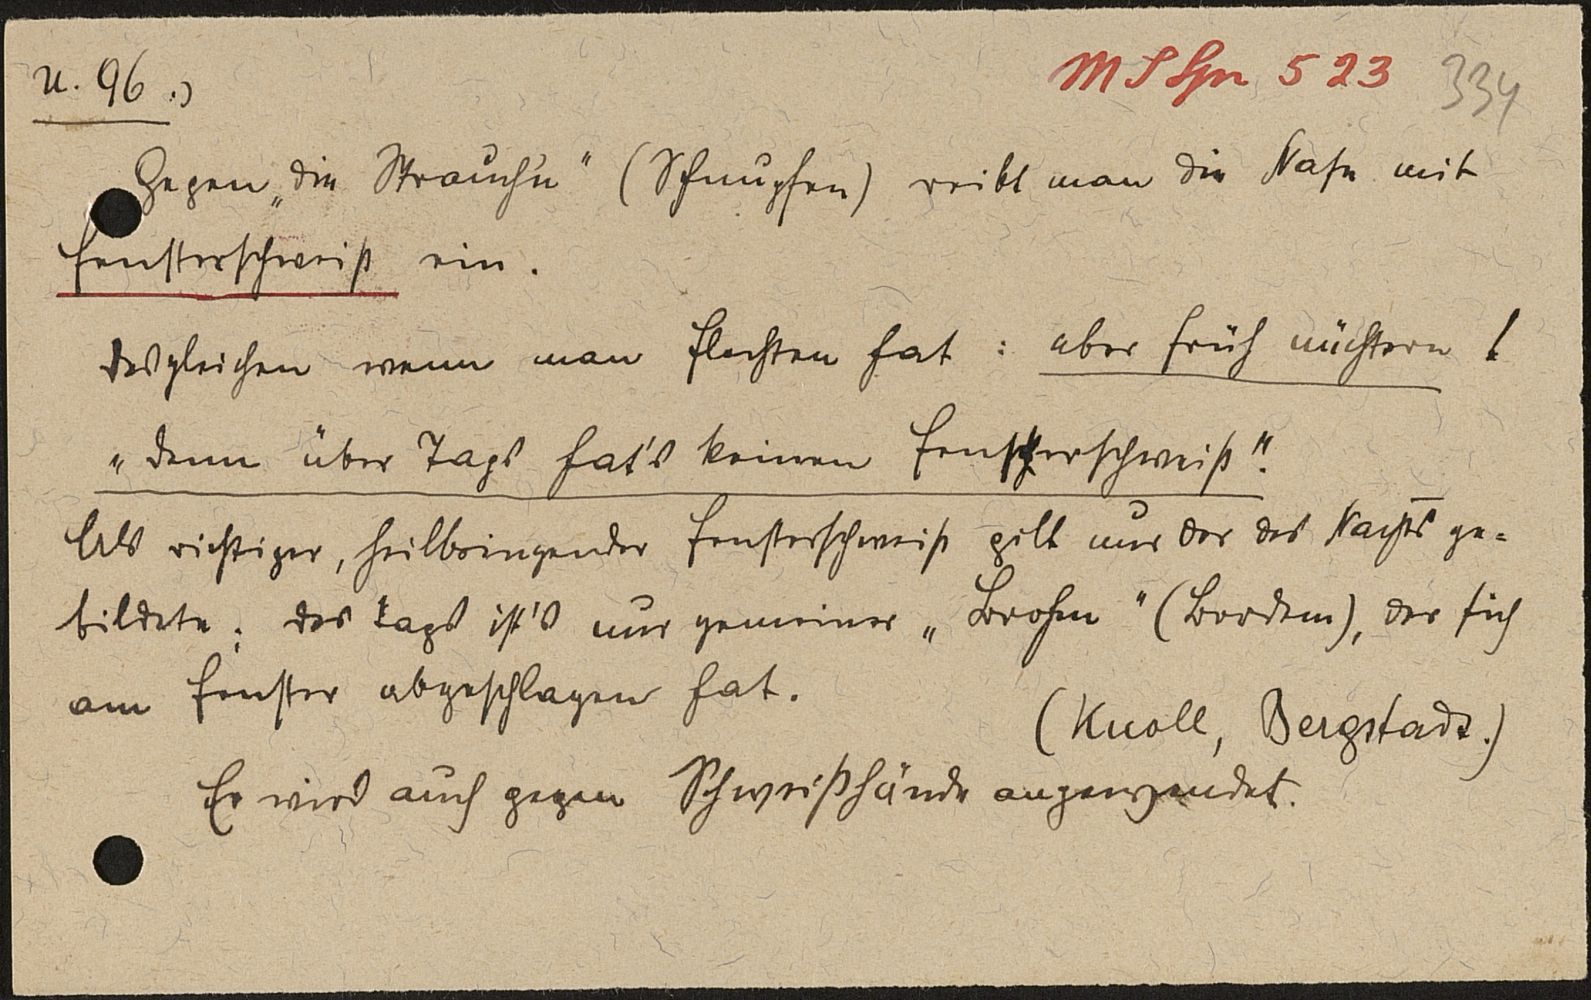 U. 96.)
MSSpr 523 334
Gegen „die Strauch'n" (Schnupfen) reibt man die Nase mit
Fensterschweiß ein.
Desgleichen wenn man Flechten hat: aber früh nüchtern!
„denn über Tags hat's keinen Fensterschweiß".
Als richtiger, heilbringender Fensterschweiß gilt nur der des Nachts ge-
bildete; des tags ist's nur gemeiner „Brohm" (Brodem), der sich
am Fenster abgeschlagen hat.
(Knoll, Bergstadt.)
Er wird auch gegen Schweißhände angewendet.